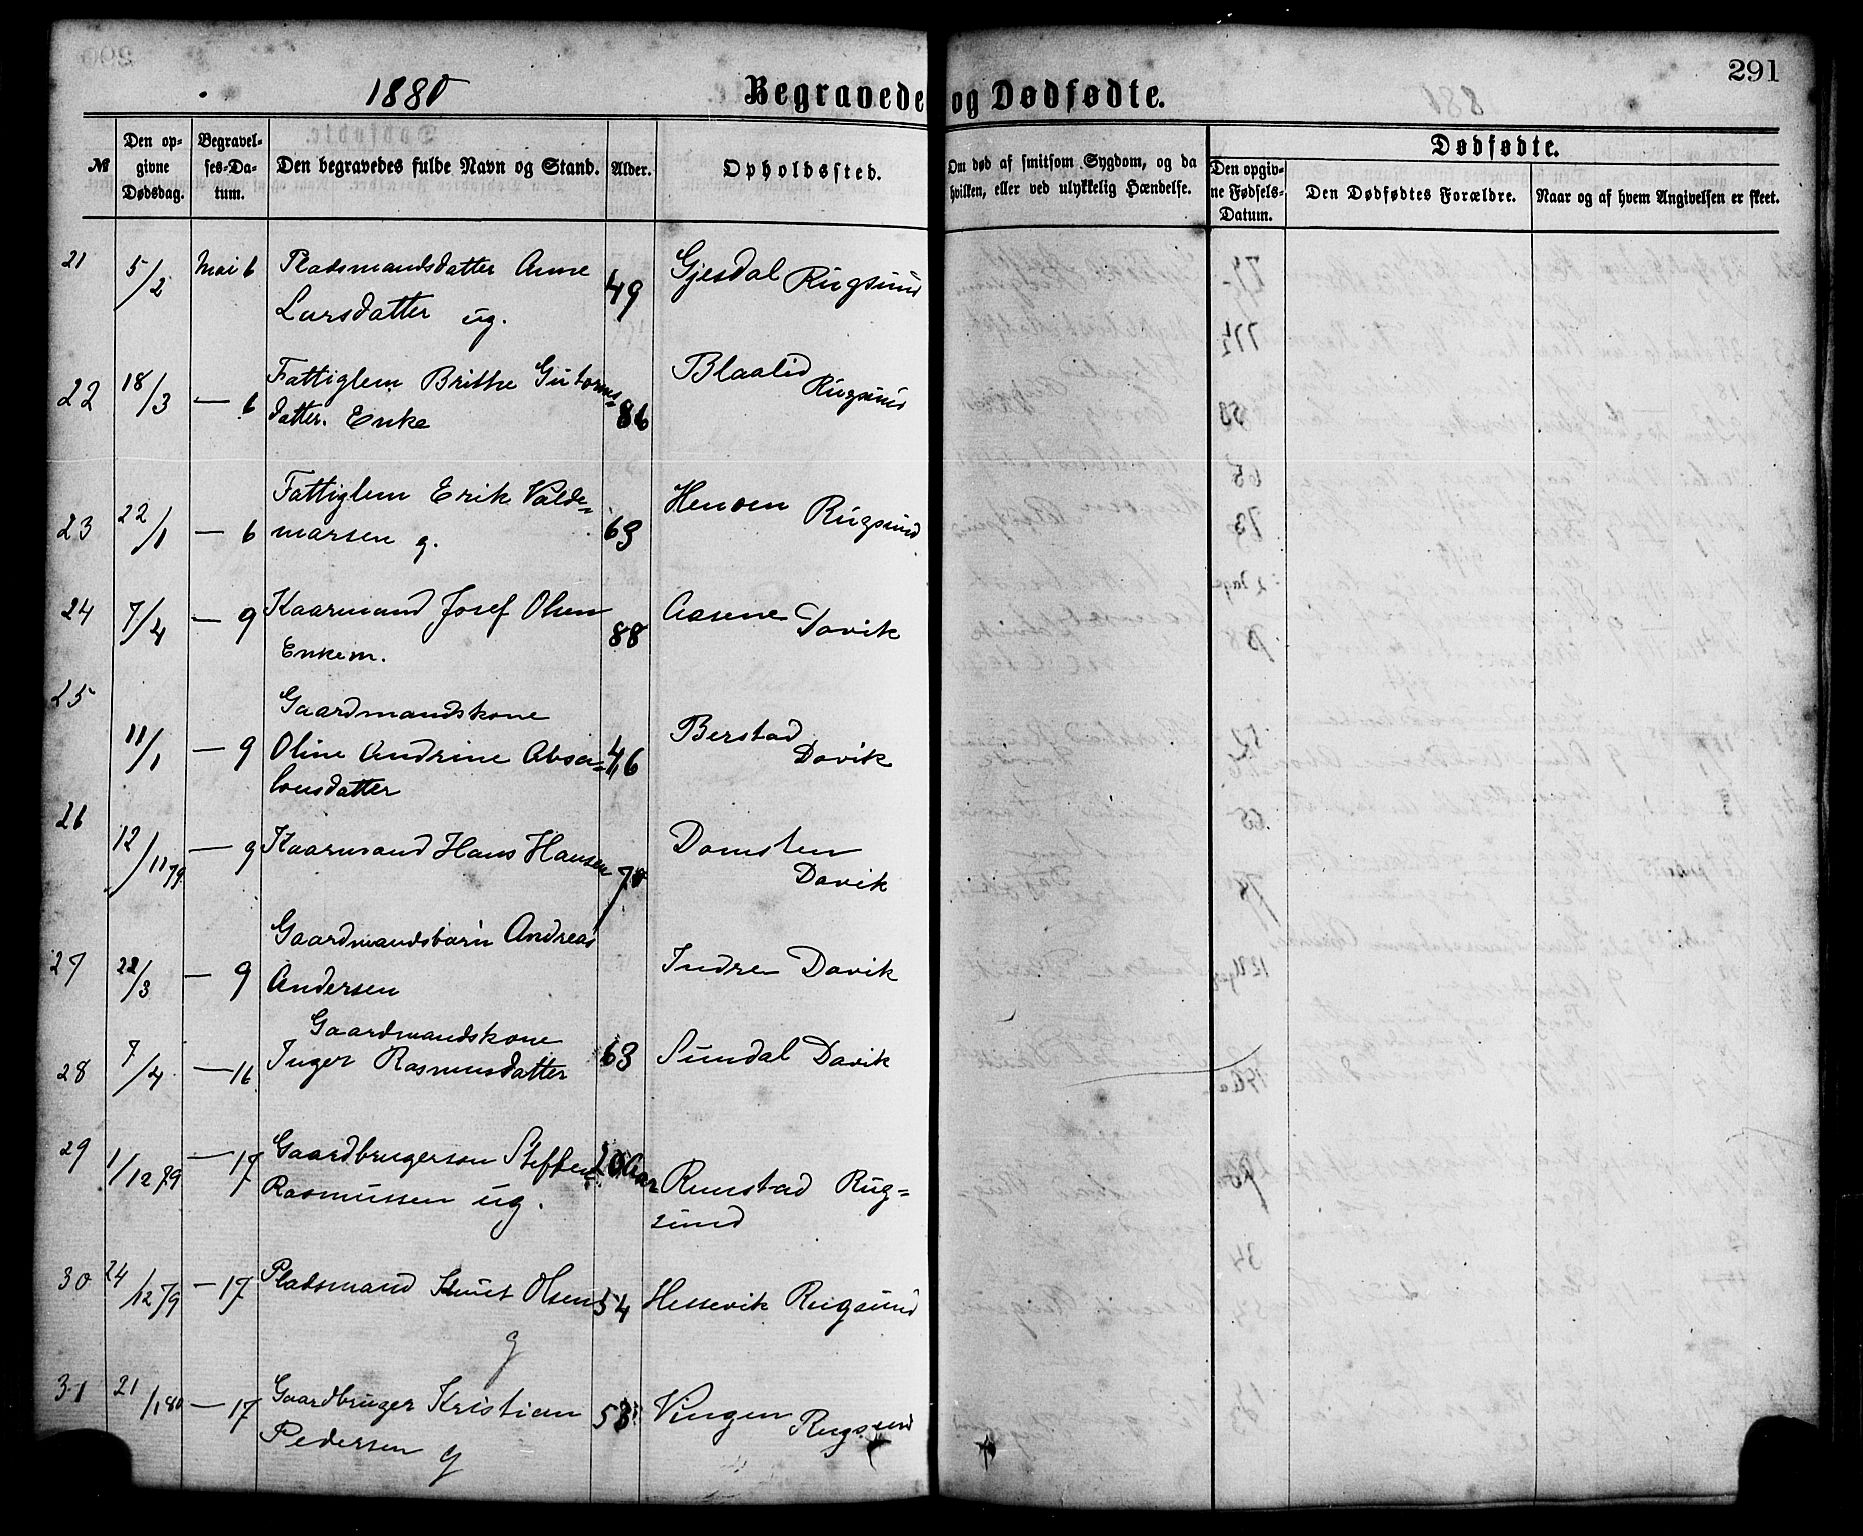 291
1880
Begravede og Dødfødte.
№
Den opgivne Dødsdag.
Begravelses-Datum.
Den begravedes fulde Navn og Stand.
Alder.
Opholdssted.
Om død af smitsom Sygdom, og da hvilken, eller ved ulykkelig Hændelse.
Dødfødte.
Den opgivne Fødsels-Datum.
Den Dødfødtes Forældre.
Naar og af hvem Angivelsen er skeet.
21 5/2 Mai 6 Pladsmandsdatter Anne 49 Gjesdal Rugsund
Larsdatter ug.
22 18/3 — 6 Fattiglem Brithe Gutorms= 86 Blaalid Rugsund
datter. Enke
23 22/1 — 6 Fattiglem Erik Valde= 63 Henøen Rugsund
marsen g.
24 7/4 — 9 Kaarmand Josef Olsen 88 Aasene Davik
Enkem.
25 11/1 — 9 Gaardmandskone
Oline Andrine Absa= 46 Berstad Davik
lonsdatter
26 12/11 79 — 9 Kaarmand Hans Hansen 78 Domsten
Davik
27 22/3 — 9 Gaardmandsbarn Andreas Indre Davik
Andersen
28 7/4 — 16 Gaardmandskone
Inger Rasmusdatter 63 Sundal Davik
29 1/12 79 — 17 Gaardbrugerson Steffen Aar Rimstad Rug=
Rasmussen ug. sund
30 24/12 79 — 17 Pladsmand Knut Olsen 54 Hessevik Rugsund
g
31 21/1 80 — 17 Gaardbruger Kristian 53 Vingen Rugsund
Pedersen g